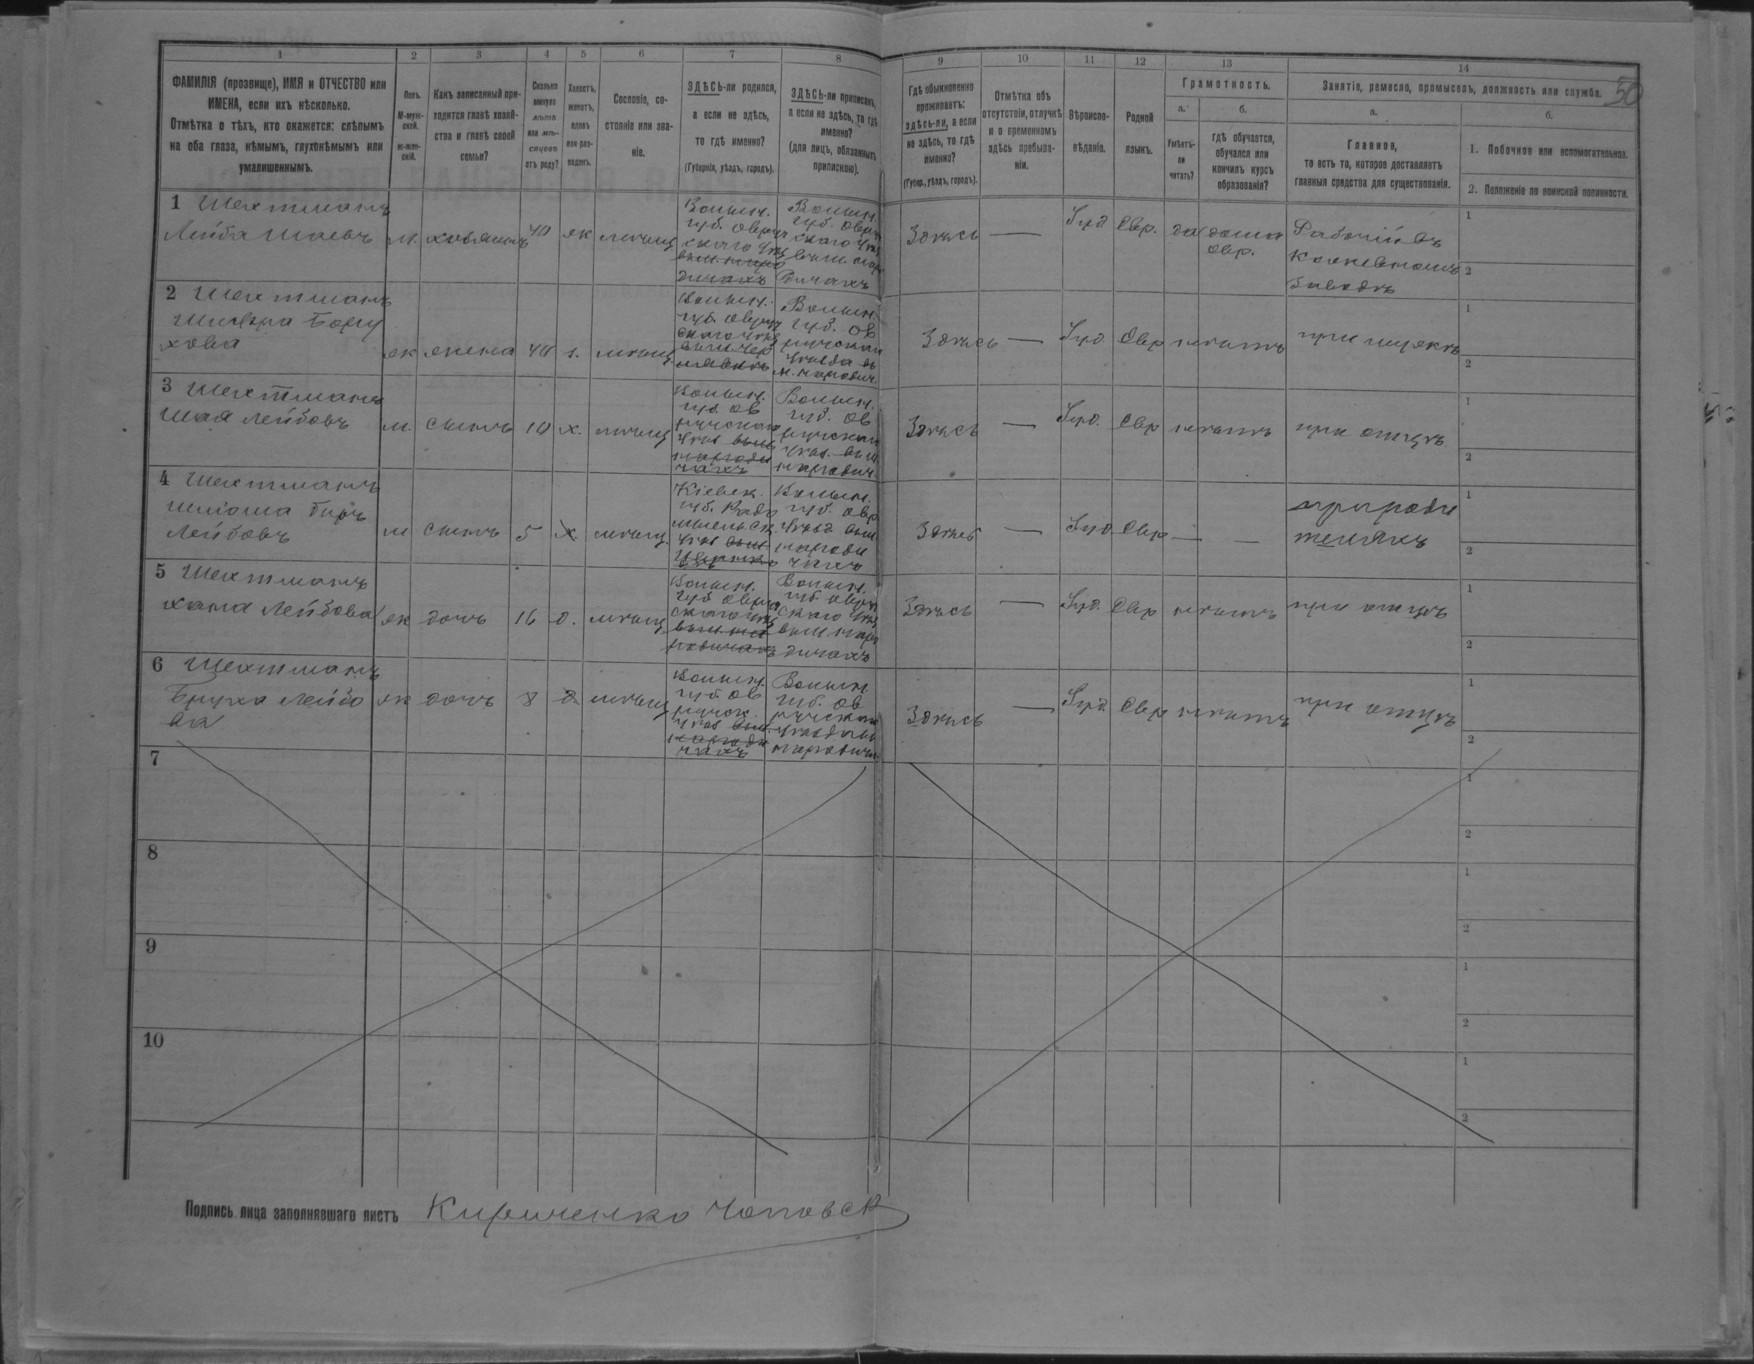 1 2 3 4 5 6 7 8 9 10 11 12 13 14
50
ФАМИЛІЯ (прозвище), ИМЯ и ОТЧЕСТВО или
ИМЕНА, если ихъ нѣсколько.
Отмѣтка о тѣхъ, кто окажется: слѣпымъ
на оба глаза, нѣмымъ, глухонѣмымъ или
умалишеннымъ.
Полъ.
М-муж-
ской.
ж-жен-
скій.
Какъ записанный при-
ходится главѣ хозяй-
ства и главѣ своей
семьи?
Сколько
минуло
лѣтъ
или мѣ-
сяцевъ
отъ роду?
Холостъ,
женатъ,
вдовъ
или раз-
веденъ.
Сословіе, со-
стояніе или зва-
ніе.
ЗДѢСЬ-ли родился,
а если не здѣсь,
то гдѣ именно?
(Губернія, уѣздъ, городъ).
ЗДѢСЬ-ли приписанъ,
а если не здѣсь, то гдѣ
именно?
(для лицъ, обязанныхъ
припискою).
Гдѣ обыкновенно
проживаетъ:
здѣсь-ли, а если
не здѣсь, то гдѣ
именно?
(Губер., уѣздъ, городъ).
Отмѣтка объ
отсутствіи, отлучкѣ
и о временномъ
здѣсь пребыва-
ніи.
Вѣроиспо-
вѣданіе.
Родной
языкъ.
Грамотность.
а. б.
Умѣетъ-
ли
читать?
гдѣ обучается,
обучался или
кончилъ курсъ
образованія?
Занятіе, ремесло, промыселъ, должность или служба.
а. б.
Главное,
то есть то, которое доставляетъ
главныя средства для существованія.
1. Побочное или вспомогательное.
2. Положеніе по воинской повинности.
1 Шехтманъ
Лейба Шаевъ м. хозяинъ 40 ж мѣщ
Волын.
губ. Овруч
скаго уѣз
Волын.
губ. Овруч
скаго уѣз
Здѣсь — Іуд Евр. да дома
евр.
Рабочій въ
заводѣ
1
2
2 Шехтманъ
хова ж жена 40 з. мѣщ
Волын.
губ. Овруч
скаго уѣз
Волын.
губ. Ов
ручскаго
уѣзда въ
м. Народич.
Здѣсь — Іуд. Евр нѣтъ при мужѣ
1
2
3 Шехтманъ
Шая Лейбовъ м. сынъ 10 х. мѣщ
Волын.
губ. Ов
ручскаго
Волын.
губ. Ов
ручскаго
Здѣсь — Іуд. Евр нѣтъ при отцѣ
1
2
4 Шехтманъ
Лейбовъ м сынъ 5 х мѣщ.
Кіевск.
губ. Радо
мысльск
Волын.
губ. Овр
Здѣсь — Іуд Евр — — при роди
теляхъ
1
2
5 Шехтманъ
Хана Лейбова ж дочь 16 д. мѣщ
Волын.
губ. Овруч
скаго уѣз
Волын.
губ. Овруч
скаго уѣз
Здѣсь — Іуд. Евр нѣтъ при отцѣ
1
2
6 Шехтманъ
Бруха Лейбо
ва ж дочь 8 д. мѣщ
Волын.
губ. Ов
ручск.
Волын
губ. Ов
ручскаго
Здѣсь — Іуд Евр нѣтъ при отцѣ
1
2
7
1
2
8
1
2
9
1
2
10
1
2
Подпись лица заполнявшаго листъ Кириченко